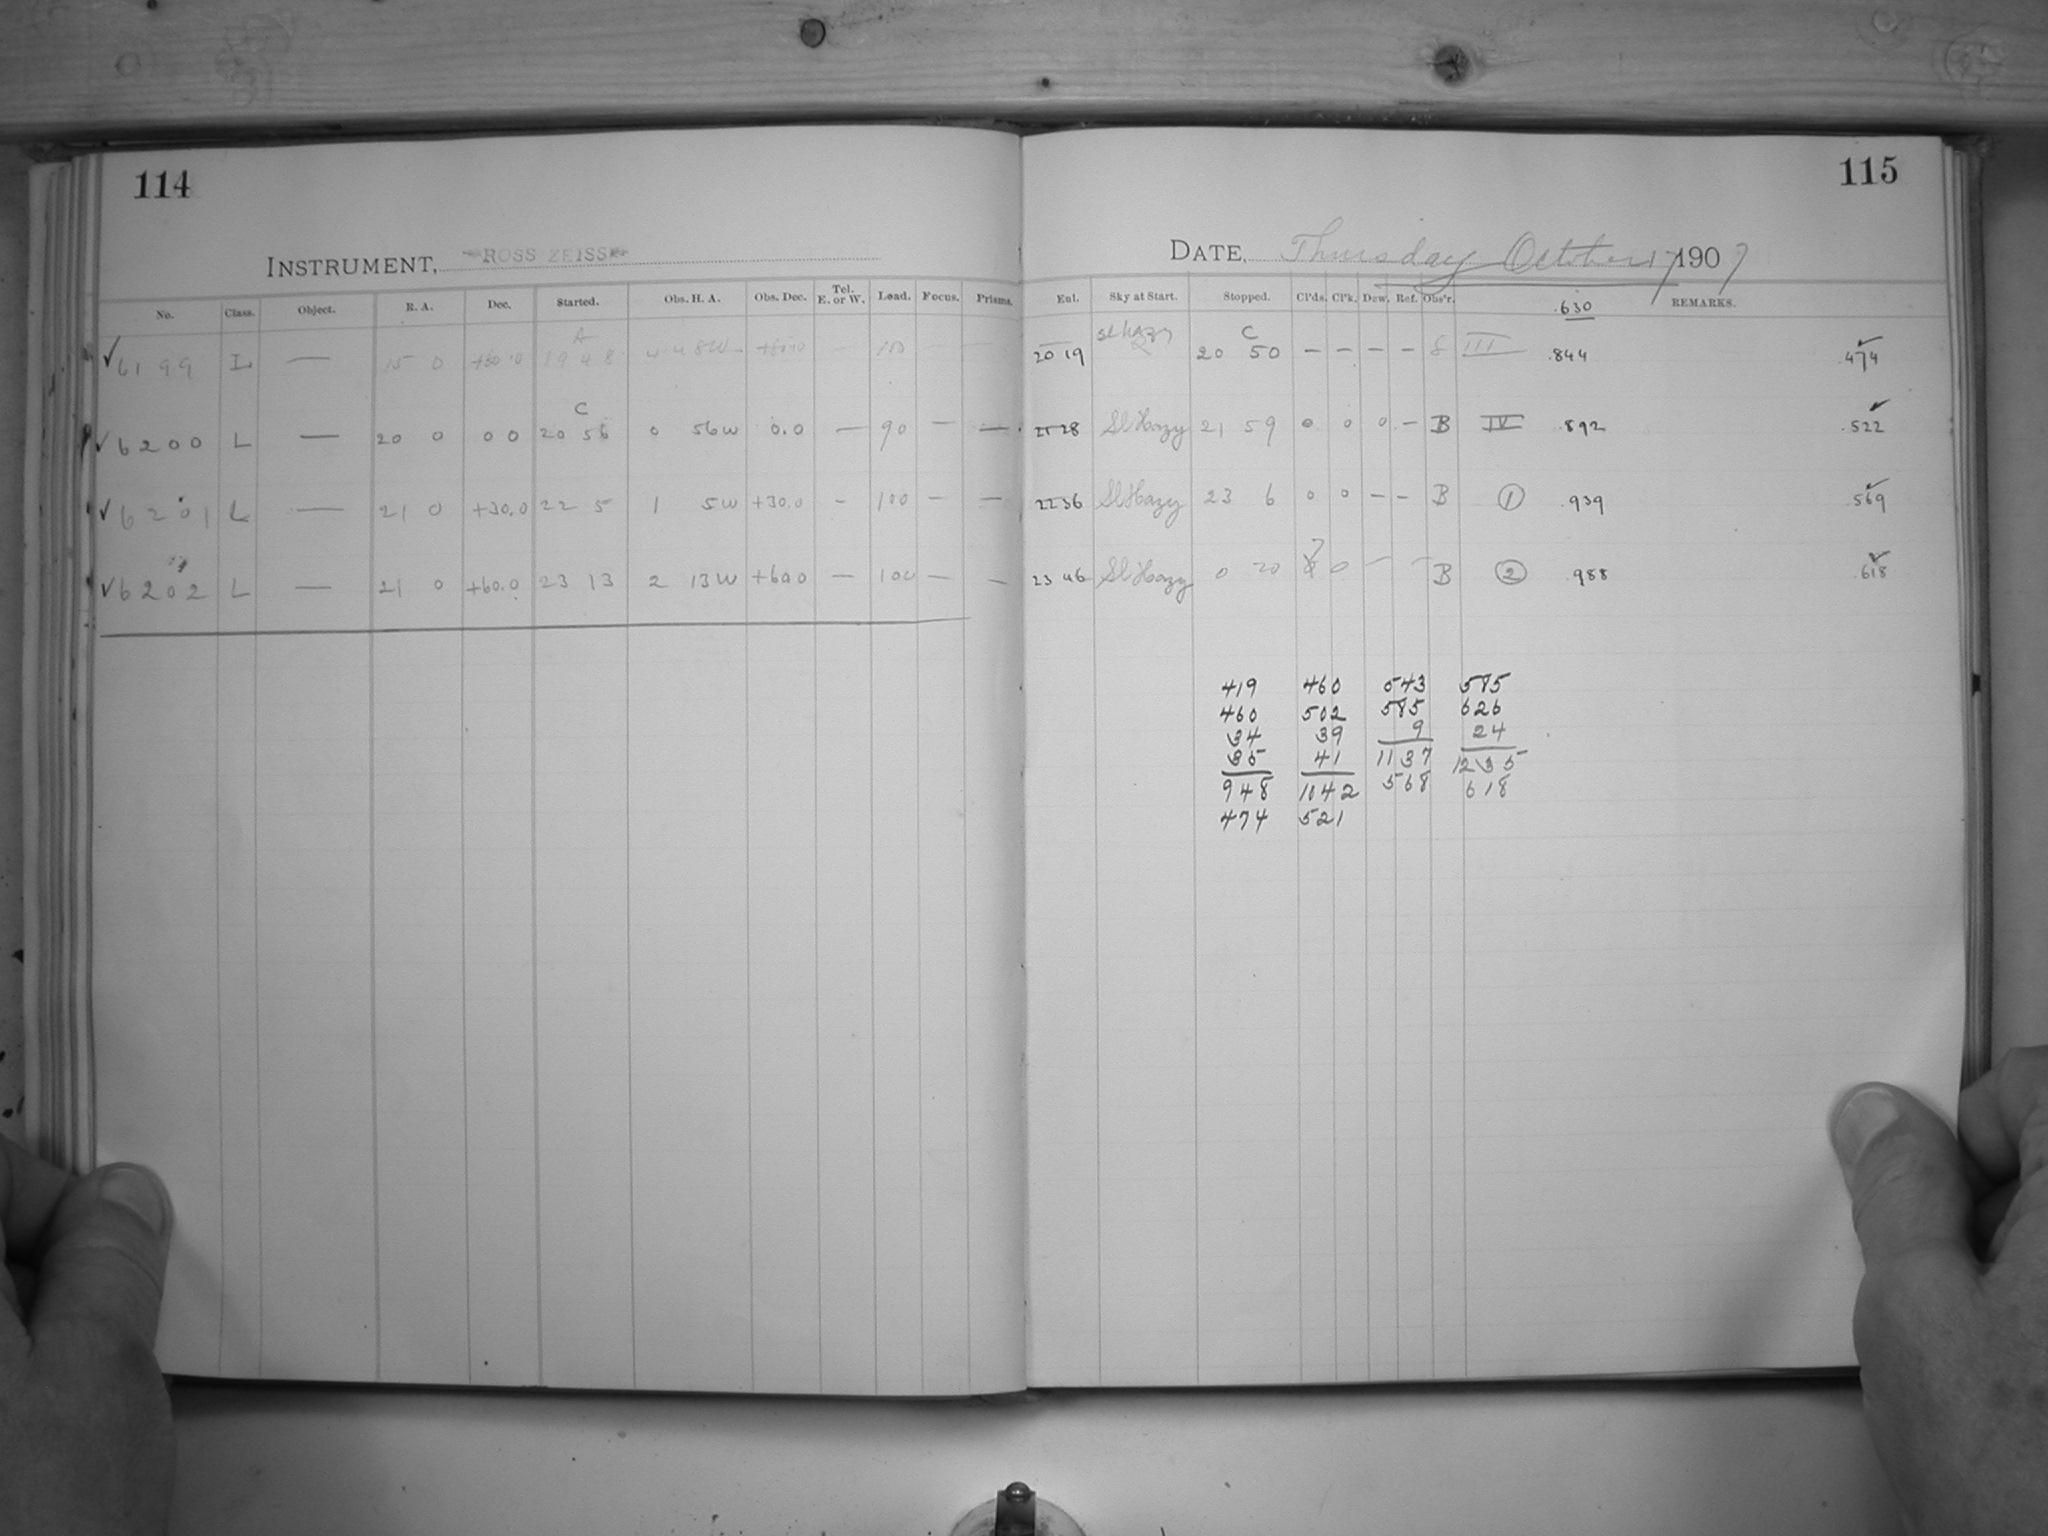 114
INSTRUMENT, ROSS ZEISS
No. Class. Object. R. A. Dec. Started. Obs. H. A. Obs. Dec. Tel. E. or W. Load. Focus. Prisms.
A
✓ 6199 L — 15 0 +60.0 19 48 4 48W +60.0 — 100 — —
C
✓ 6200 L — 20 0 0 0 20 56 0 56W 0.0 — 90 — —
✓ 6201 L — 21 0 +30.0 22 5 1 5W +30.0 — 100 — —
✓ 6202 L — 21 0 +60.0 23 13 2 13W +60.0 — 100 — —
115
DATE, Thursday October 17 1907
Eul. Sky at Start. Stopped. Cl'ds. Cl'k. Dew. Ref. Obs'r. .630 REMARKS.
20 19 Sl hazy C 20 50 — — — — S III .844 .474 ✓
21 28 Sl Hazy 21 59 0 0 0 — B IV .892 .522 ✓
22 36 Sl Hazy 23 6 0 0 — — B ① .939 .569 ✓
23 46 Sl Hazy 0 20 0 — — B ② .988 .618 ✓
419 460 543 585
460 502 585 626
34 39 9 24
35 41 1137 1235
948 1042 568 618
474 521